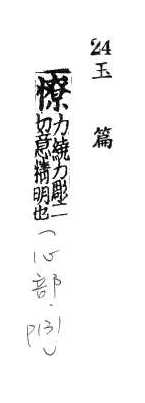 24
玉篇
憭力繞力彫二
切意精明也
(心部.
P131)